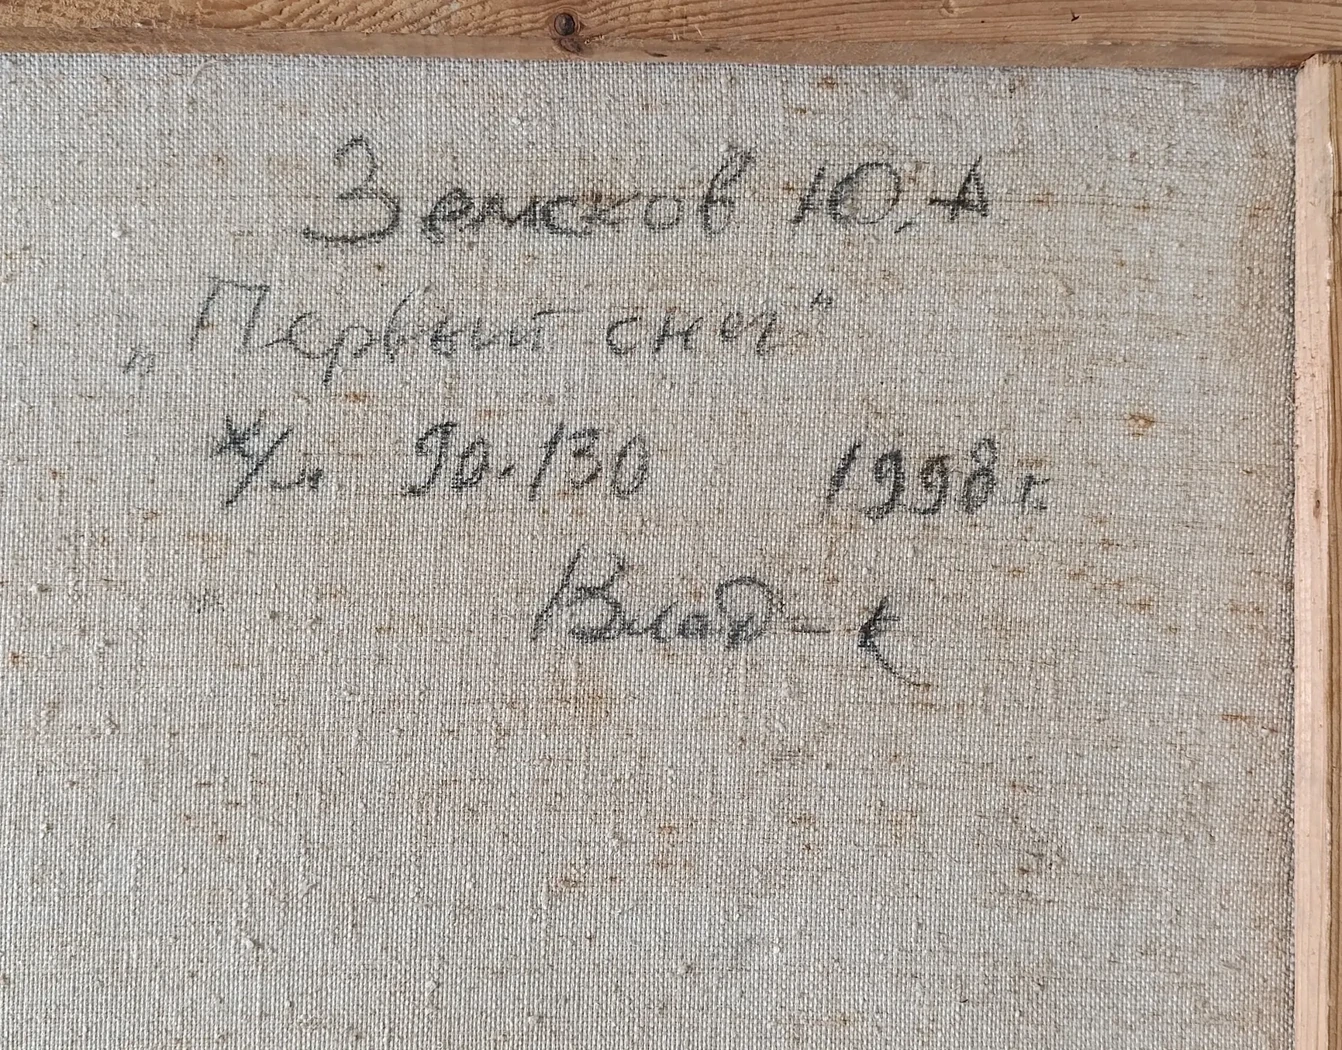 Земсков Ю.А
„Первый снег"
х/м 90.130 1998 г.
Влад-к